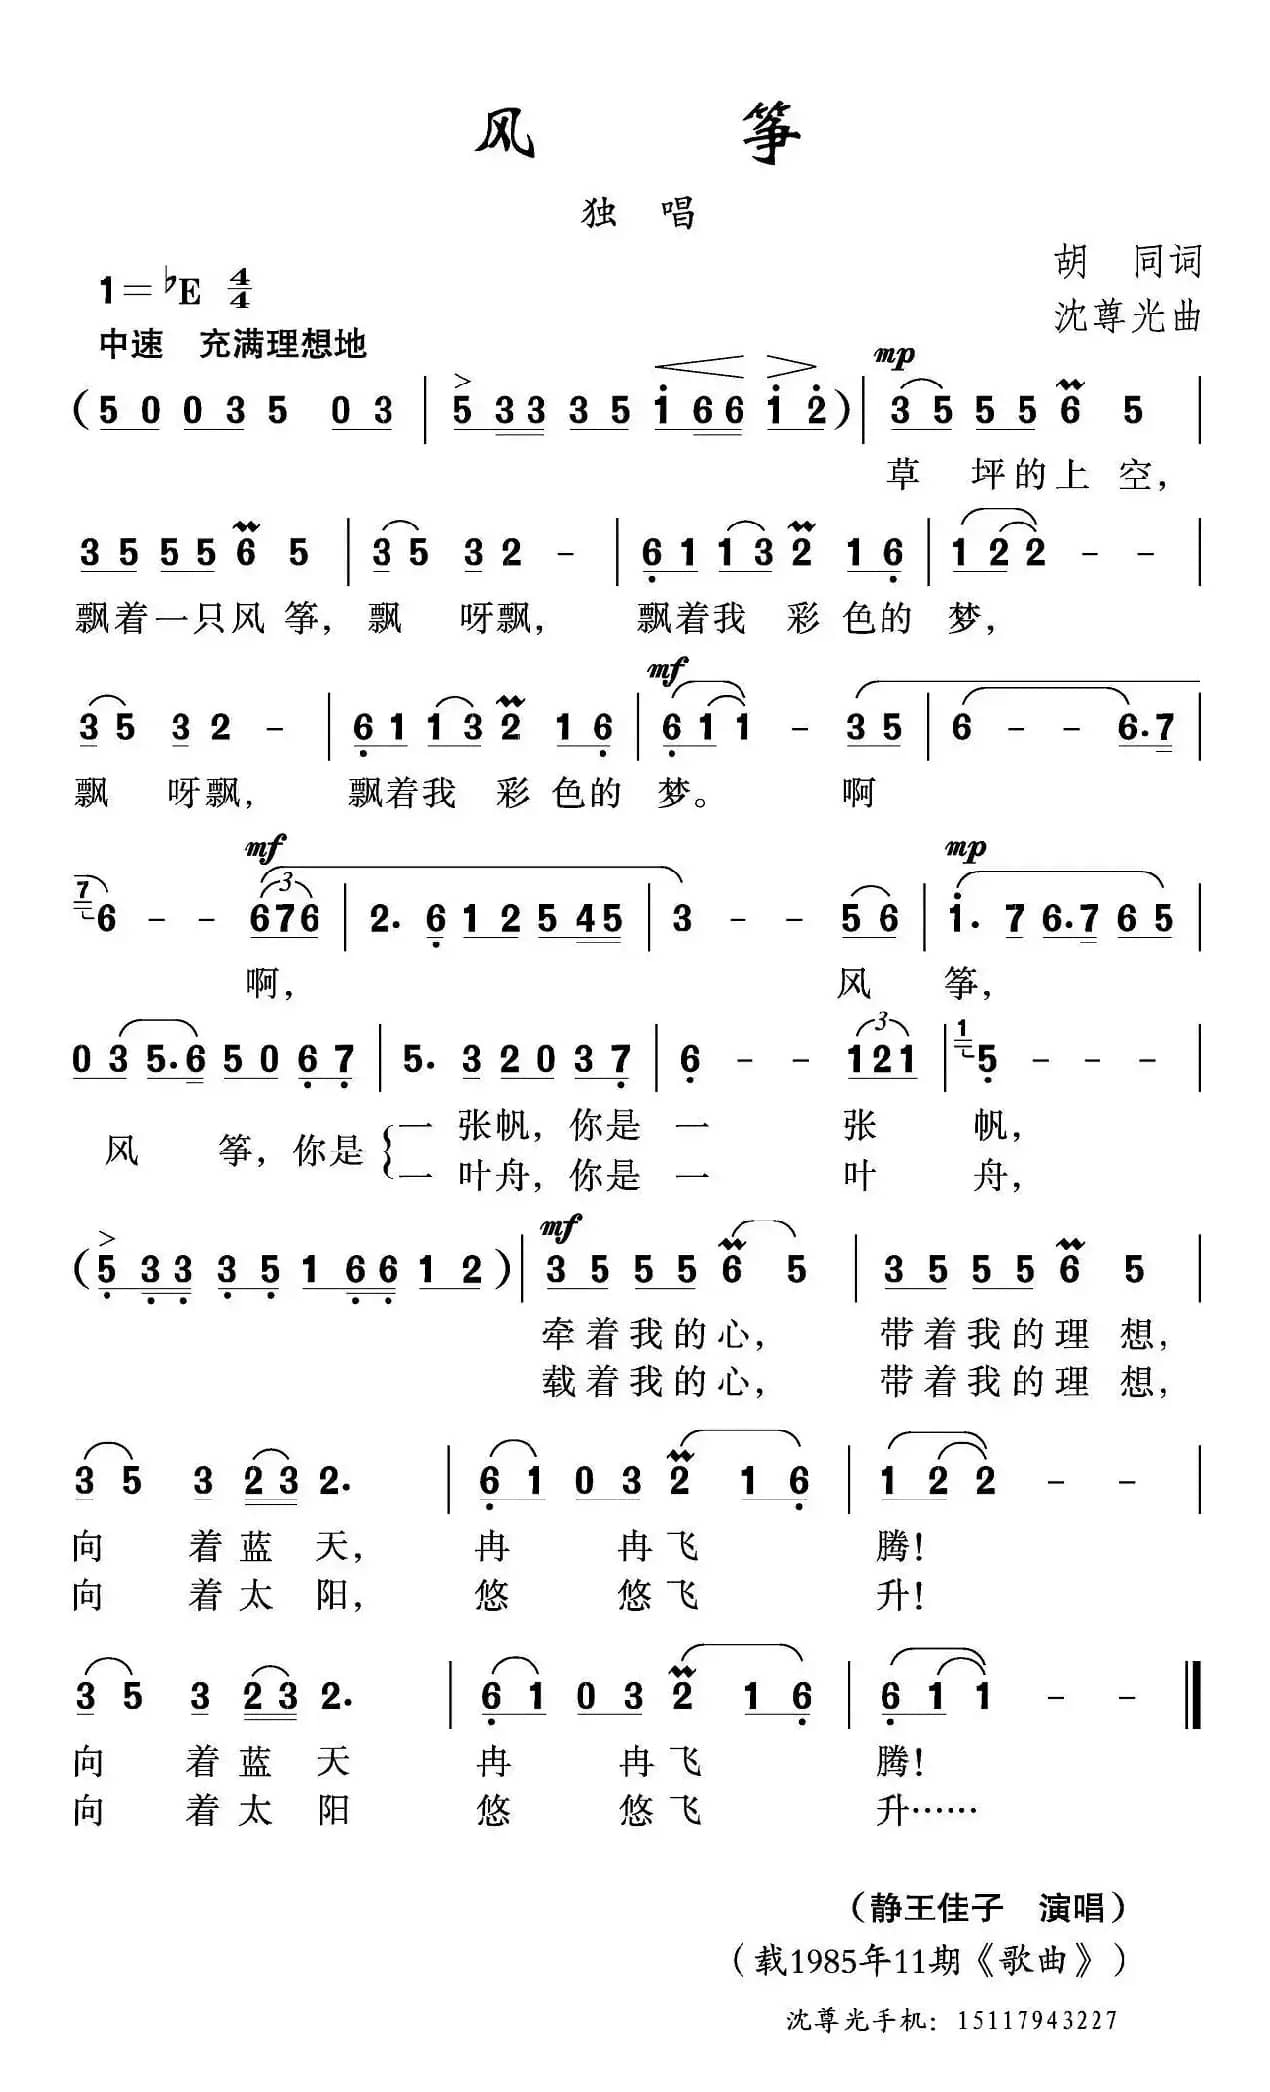 风 筝
独 唱
胡 同词
1=♭E 4/4
沈尊光曲
中速 充满理想地
mp
(5 0 0 3 5 0 3 | 5 3 3 3 5 1 6 6 1 2) | 3 5 5 5 6 5 |
草 坪的上 空,
3 5 5 5 6 5 | 3 5 3 2 - | 6 1 1 3 2 1 6 | 1 2 2 - - |
飘着一只风 筝, 飘 呀飘, 飘着我 彩 色的 梦,
mf
3 5 3 2 - | 6 1 1 3 2 1 6 | 6 1 1 - 3 5 | 6 - - 6. 7 |
飘 呀飘, 飘着我 彩 色的 梦。 啊
mf mp
7 6 - - 3 6 7 6 | 2. 6 1 2 5 4 5 | 3 - - 5 6 | 1. 7 6. 7 6 5 |
啊, 风 筝,
0 3 5. 6 5 0 6 7 | 5. 3 2 0 3 7 | 6 - - 3 1 2 1 | 1 5 - - - |
风 筝, 你是
一 张帆, 你是 一 张 帆,
一 叶舟, 你是 一 叶 舟,
mf
(5 3 3 3 5 1 6 6 1 2) | 3 5 5 5 6 5 | 3 5 5 5 6 5 |
牵着我的心, 带着我的理 想,
载着我的心, 带着我的理 想,
3 5 3 2 3 2. | 6 1 0 3 2 1 6 | 1 2 2 - - |
向 着 蓝 天, 冉 冉 飞 腾!
向 着 太 阳, 悠 悠 飞 升!
3 5 3 2 3 2. | 6 1 0 3 2 1 6 | 6 1 1 - - ‖
向 着 蓝 天 冉 冉 飞 腾!
向 着 太 阳 悠 悠 飞 升……
(静王佳子 演唱)
(载1985年11期《歌曲》)
沈尊光手机: 15117943227